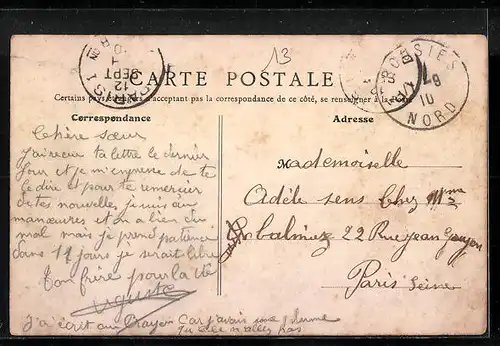 13
CARTE POSTALE
Certains pays étrangers n'acceptant pas la correspondance de ce côté, se renseigner à la Poste
Correspondance
Chère sœur
j'ai recu ta lettre le dernier
jour et je m'enprese de te
le dire et pour te remercier
de tes nouvelles je suis au
manœuvres et on a bien du
mal mais je prend patience
dans 11 jours je serait libre
Ton frère pour la vie
Auguste
J'ai écrit au Crayon Car j'avais une plume
qu elle n'allez pas
Adresse
Mademoiselle
Adèle sens Chez Mme
22 Rue jean Goujon
Paris Seine
PARIS
12
SEPT
NORD
10